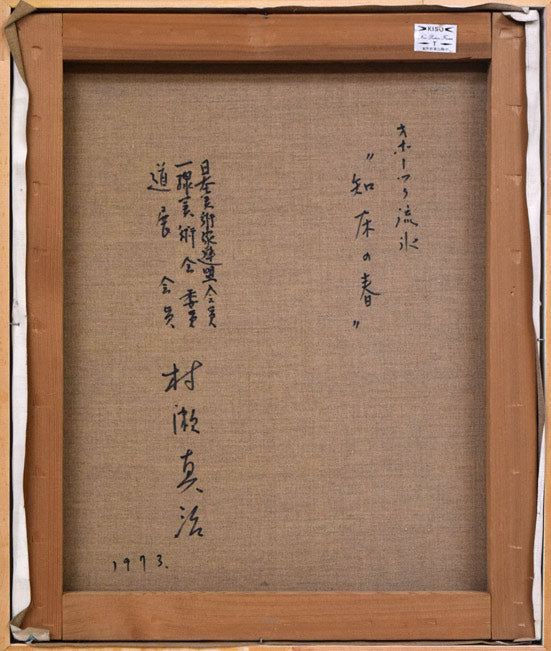 オホーツク流氷
"知床の春"
日本美術家連盟会員
一線美術会委員
道展 会員
村瀬真治
1973.
KISO
T